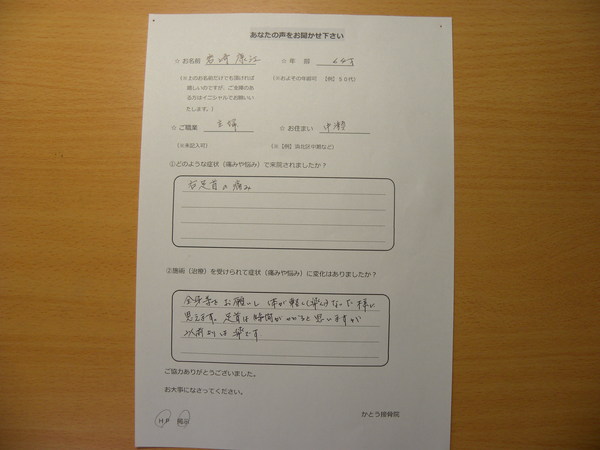 あなたの声をお聞かせ下さい
☆ お名前 岩崎康江 ☆ 年 齢
(※上のお名前だけでも頂ければ (※およその年齢可 【例】50代)
嬉しいのですが、ご支障のあ
る方はイニシャルでお願いい
たします。)
☆ ご職業 主婦 ☆ お住まい 中瀬
(※未記入可) (※【例】浜北区中瀬など)
①どのような症状(痛みや悩み)で来院されましたか?
右足首の痛み
②施術(治療)を受けられて症状(痛みや悩み)に変化はありましたか?
全身等をお願いし 体が軽く(楽に)なった様に
思えます。足首は時間がかかると思いますが
以前よりは楽です。
ご協力ありがとうございました。
お大事になさってください。
HP 掲示 かとう接骨院